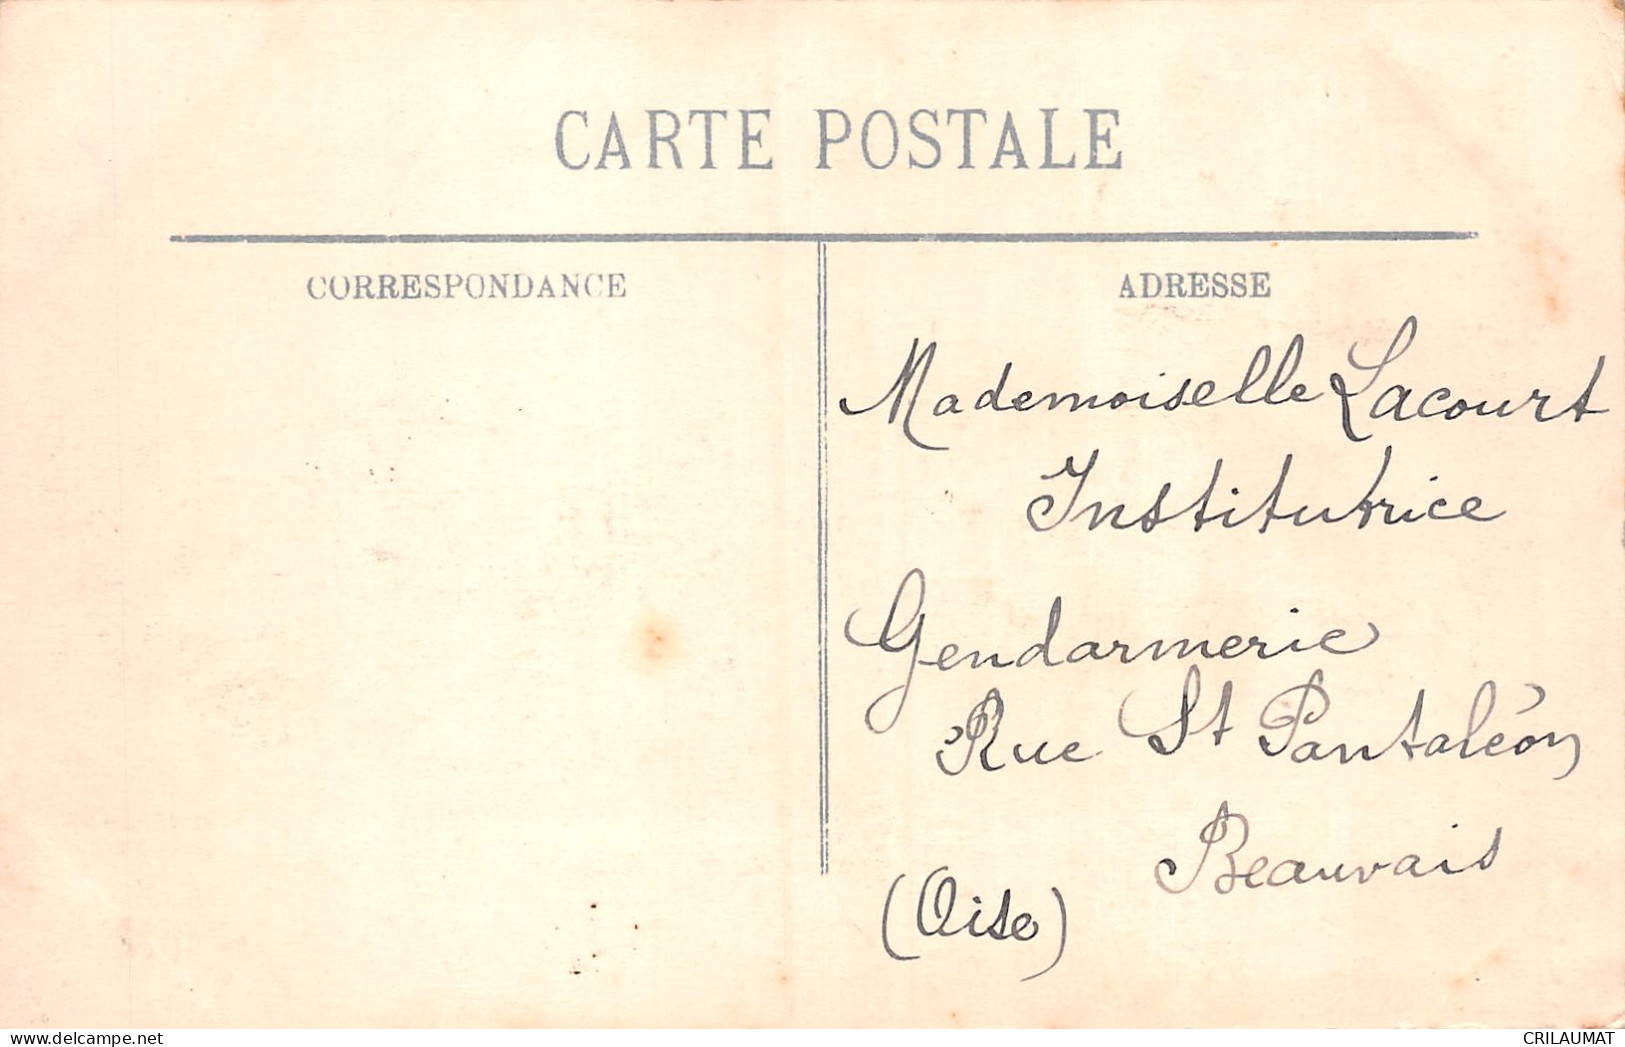 CARTE POSTALE
CORRESPONDANCE
ADRESSE
Mademoiselle Lacourt
Institutrice
Gendarmerie
Rue St Pantaléon
Beauvais
(Oise)
www.delcampe.net
CRILAUMAT